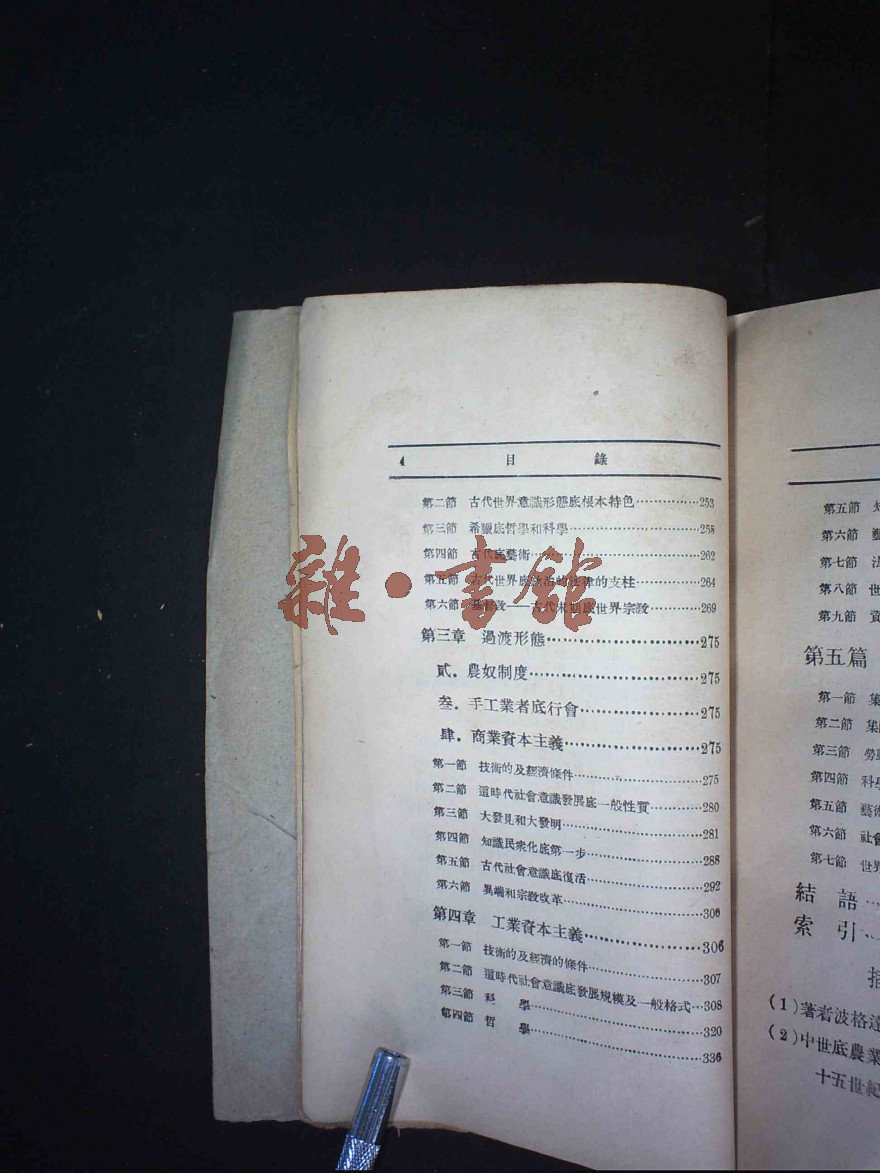 4 目 錄
第二節 古代世界意識形態底根本特色…………253
第三節 希臘底哲學和科學…………255
第四節 古代底藝術…………262
第五節 古代世界底政治的法律的支柱…………264
第六節 基督敎——古代末期底世界宗敎…………269
第三章 過渡形態…………275
貳．農奴制度…………275
叁．手工業者底行會…………275
肆．商業資本主義…………275
第一節 技術的及經濟條件…………275
第二節 這時代社會意識發展底一般性質…………280
第三節 大發見和大發明…………281
第四節 知識民衆化底第一步…………288
第五節 古代社會意識底復活…………292
第六節 異端和宗敎改革…………300
第四章 工業資本主義…………306
第一節 技術的及經濟的條件…………307
第二節 這時代社會意識底發展規模及一般格式…308
第三節 科 學…………320
第四節 哲 學…………336
第五節
第六節
第七節 法
第八節 世
第九節 資
第五篇
第一節 集
第二節 集
第三節 勞
第四節 科
第五節 藝
第六節 社
第七節 世
結 語…
索 引…
(1)著者波格達
(2)中世底農業
十五世紀
雜·書館